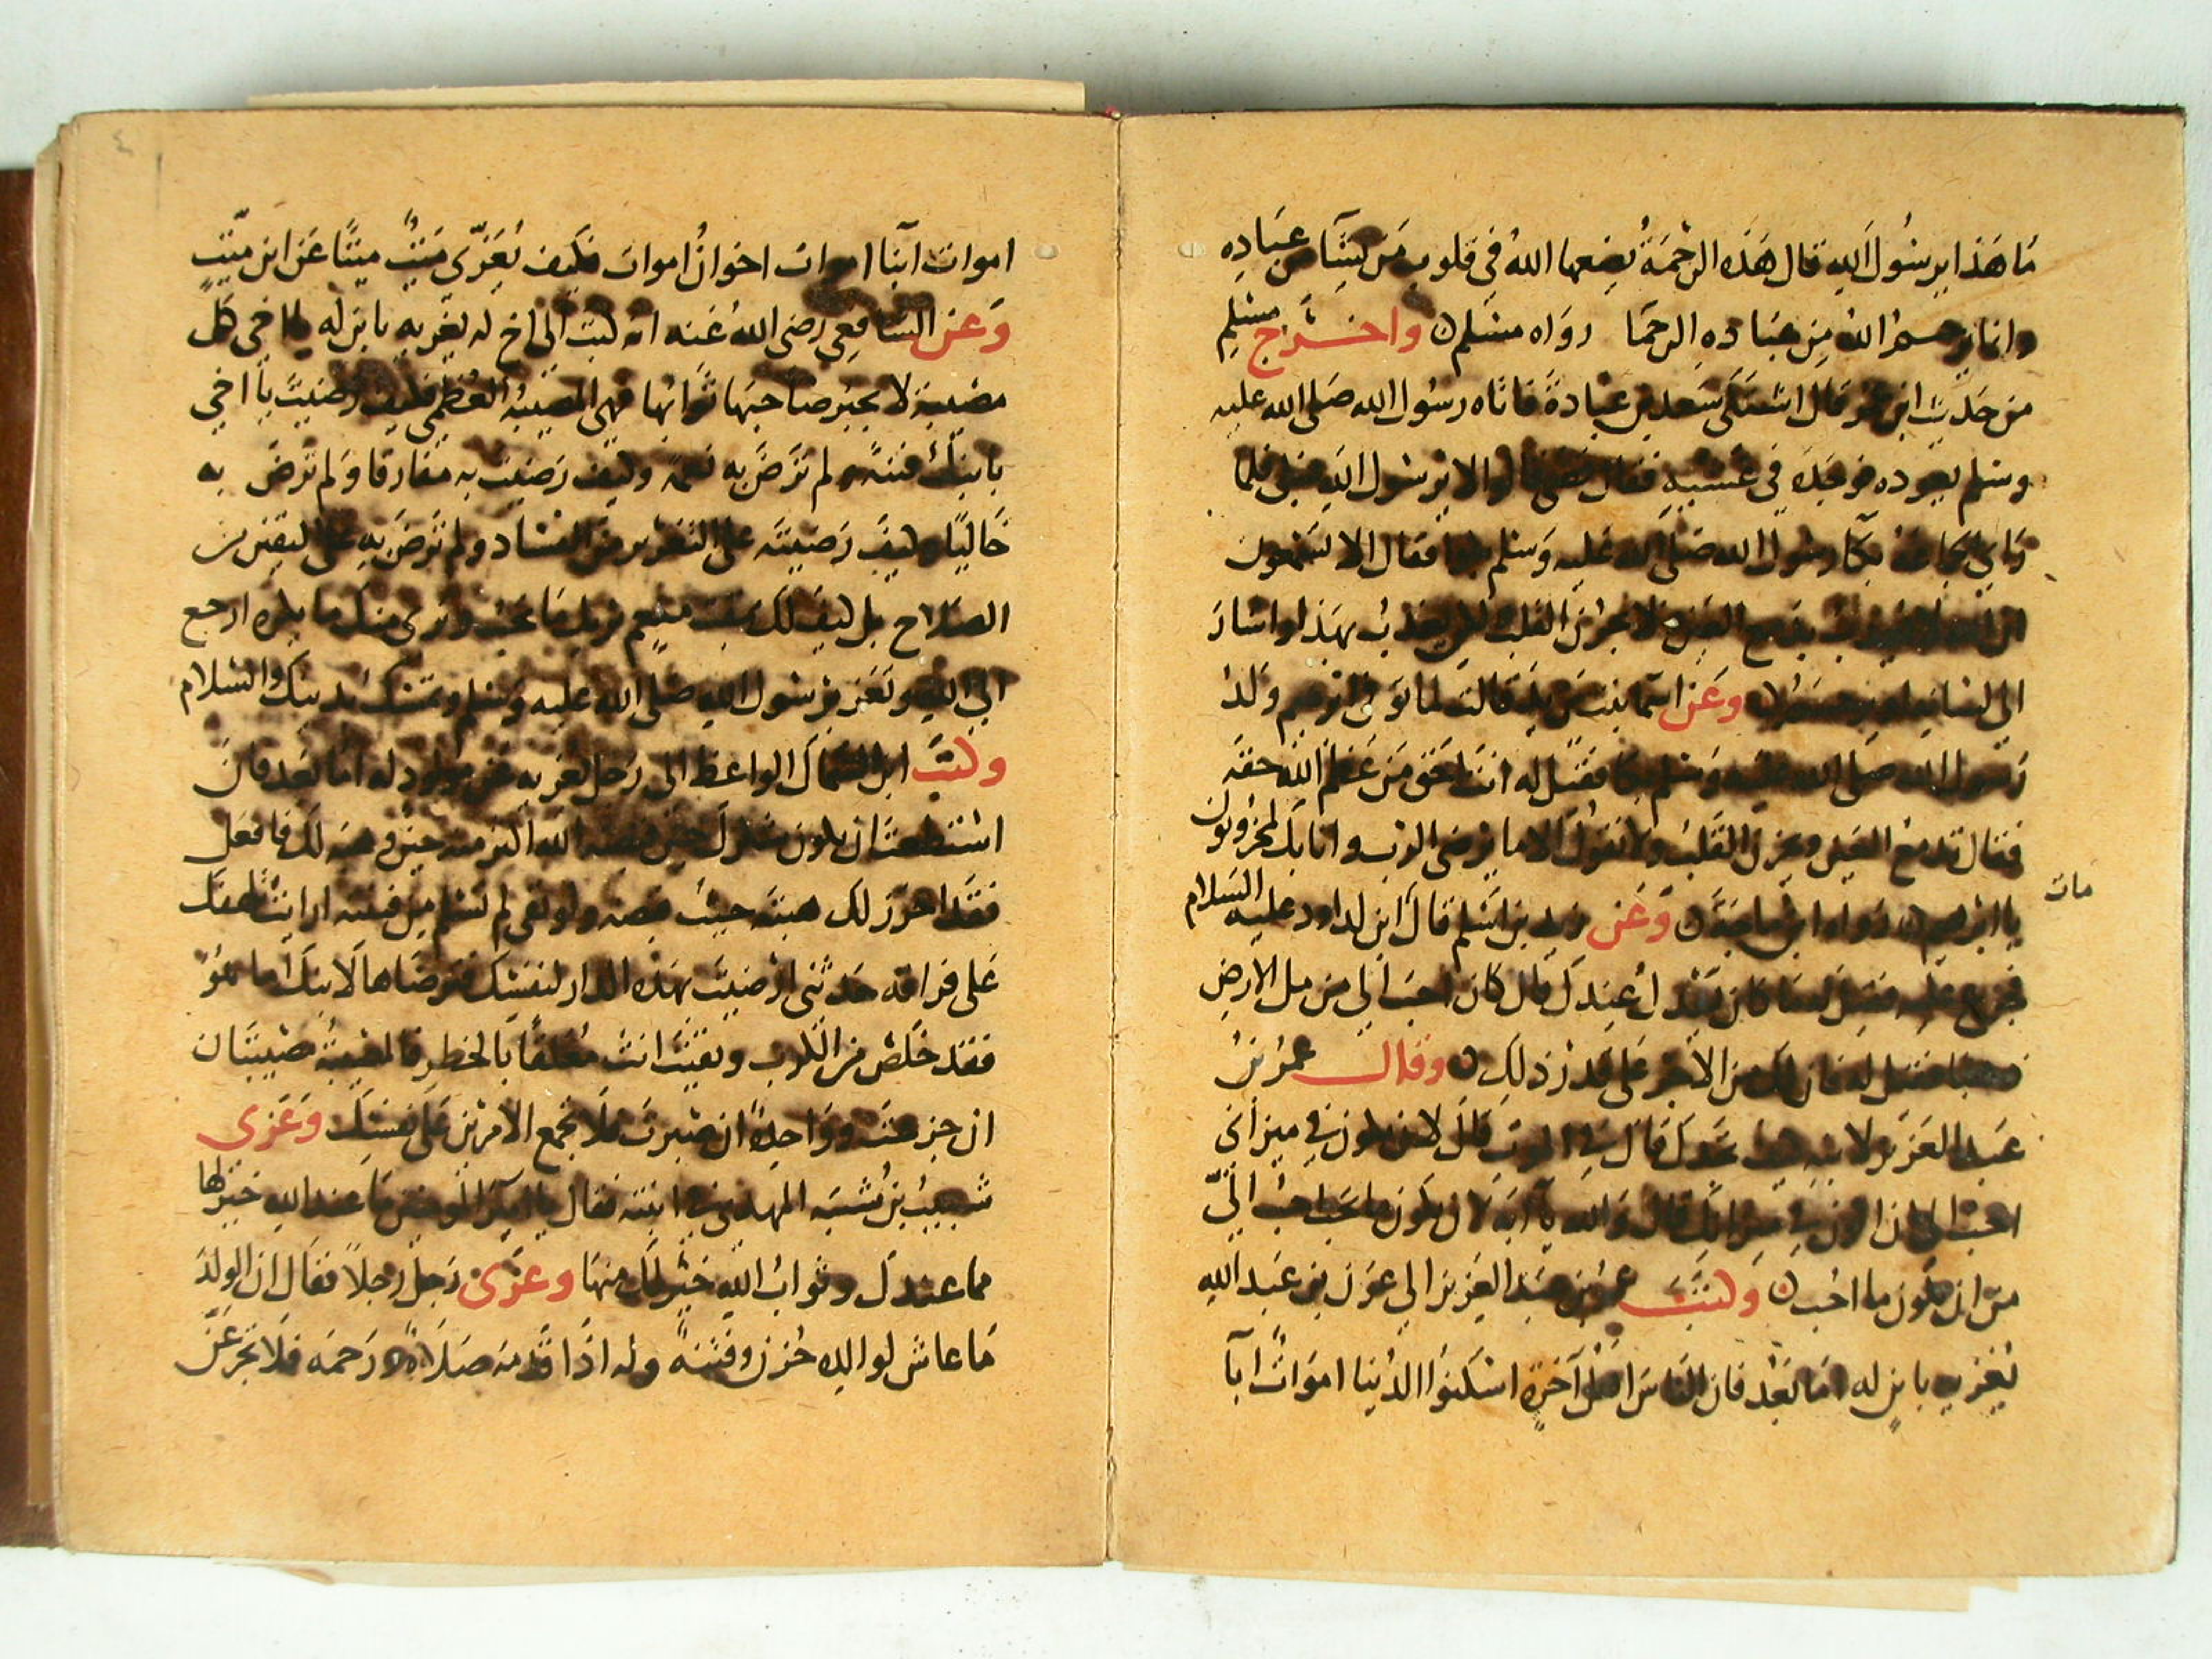 مَا هَذا يرسُولَ الله قال هَذه الرحْمَةُ يضعها اللهُ في قلوب مَن يشَآ من عبَادِه
وانما يرحم اللهُ مِن عبَاده الرحمَا رواه مسْلم واخرَج مسْلم
من حَديث ابن عمر قال اشتكَى سَعد بن عبَادةَ فاتاه رسُول الله صَلى الله عليه
وسَلم يعوده فوجَده في غشيته فقال قضى قالوا لا يرسُول الله فبكى فلما
رَاى بكآ رسُول الله صَلى الله عَليه وَسَلم بكوا فقال الا تسْمَعون
ان الله لا يعذب بدمع العَين ولا بحزن القلب ولكن يعذبُ بهَذا واشارَ
الى لسَانه او يرحم وعَن اسْمَا بنت يزيد قالت لما توفى ابرهيم ولدُ
رَسُول الله صَلى الله عليه وَسَلم بكا فقيل له انتَ احَق مَن عَظم الله حقه
فقال تدمعُ العَين ويحزن القَلبُ ولا نقولُ الا ما يرضى الرب وانا بك لمحزونون
يا ابرهيم رواه ابن ماجَة وَعَن زيد بن اسْلم قال ابن لداود عليه السَلام
مات
فجزع عليه فقيل له ما كان يعدل عندكَ قال كان احبَ الىَ من مل الارض
ذهبًا فقيل له فان لك من الاجر على قدر ذلك وقال عمرُ بنُ
عَبد العَزيز لابنه كيف تجدكَ قال في الموت قال لان تكون في ميزانى
احبُ الى من ان اكون في ميزانك قال والله يا ابَه لان يكون ما تحب احبُ الىَّ
من ان يكون ما احُب وكتَبَ عمرُ بن عبد العَزيز الى عون بن عَبد الله
يُعَزيه بابن له امَا بَعْد فان الناسَ اهْلُ آخرة اسْكنوا الدُنيا اموَاتٌ ابآ
اموات ابنآ اموات اخوانُ اموات فكيف يُعَزّى مَيتٌ ميتًا عَن ابن ميّتٍ
وَعن الشافعِي رضى الله عَنه انه كتب الى اخ له يعَزيه بابن له يا اخى كل
مصْيبة لا يجبُر صَاحبَهَا ثوَابُها فهى المصيبَةُ العُظمى فكيف رَضيتَ يا اخى
بابنكَ فتنةً ولم تَرْضَ به نعمَة وكيف رَضيت به مفارقا وَلم تَرضَ به
خَاليًا وكيفَ رَضيته على التغرير من الفسَاد ولم تَرْضَ به على اليقين من
الصَلاح بل كيفَ لك بمقت منعِم يريك مَا تحبُ ويرى منك ما يكره ارجع
الى الله وتعَز برسُول الله صَلى الله عليه وَسَلم وتمَسَك بدينك والسَلام
وكتَبَ ابن السماك الواعظ الى رَجل يعزيه عن مولود له امَا بَعْد فان
اسْتَطعتَ ان يكون شكركَ حين قبضه الله اكثر منه حين وهبه لكَ فافعَل
فقَد احرزَ لك هبته حيثُ قبضه ولو بقى لم تسْلم من فتنته ارايت لهفك
عَلى فراقه حَدثنى ارَضيتَ بهذه الدار لنفسْك فترضَاها لابنكَ اما هوُ
فقَد خَلصَ من الكدر وبقيتَ انت مُعَلقًا بالخطر فالمصيبَةُ مصيبتان
ان جزعتَ وواحِدةً ان صَبرت فلا تجمع الامرَين عَلى نفسْك وَعَزى
شبيبُ بن شَيْبَه المهدى في ابنته فقال يا اميرَ المومنين مَا عند الله خير لها
مما عندكَ وثوابُ الله خيرٌ لك منهَا وعزّى رَجلٌ رجلاً فقال ان الولدَ
مَا عاش لوالده حُزن وفتنه وله اذَا قدمه صَلَاةٌ وَ رَحمَه فلا تجزعَنّ